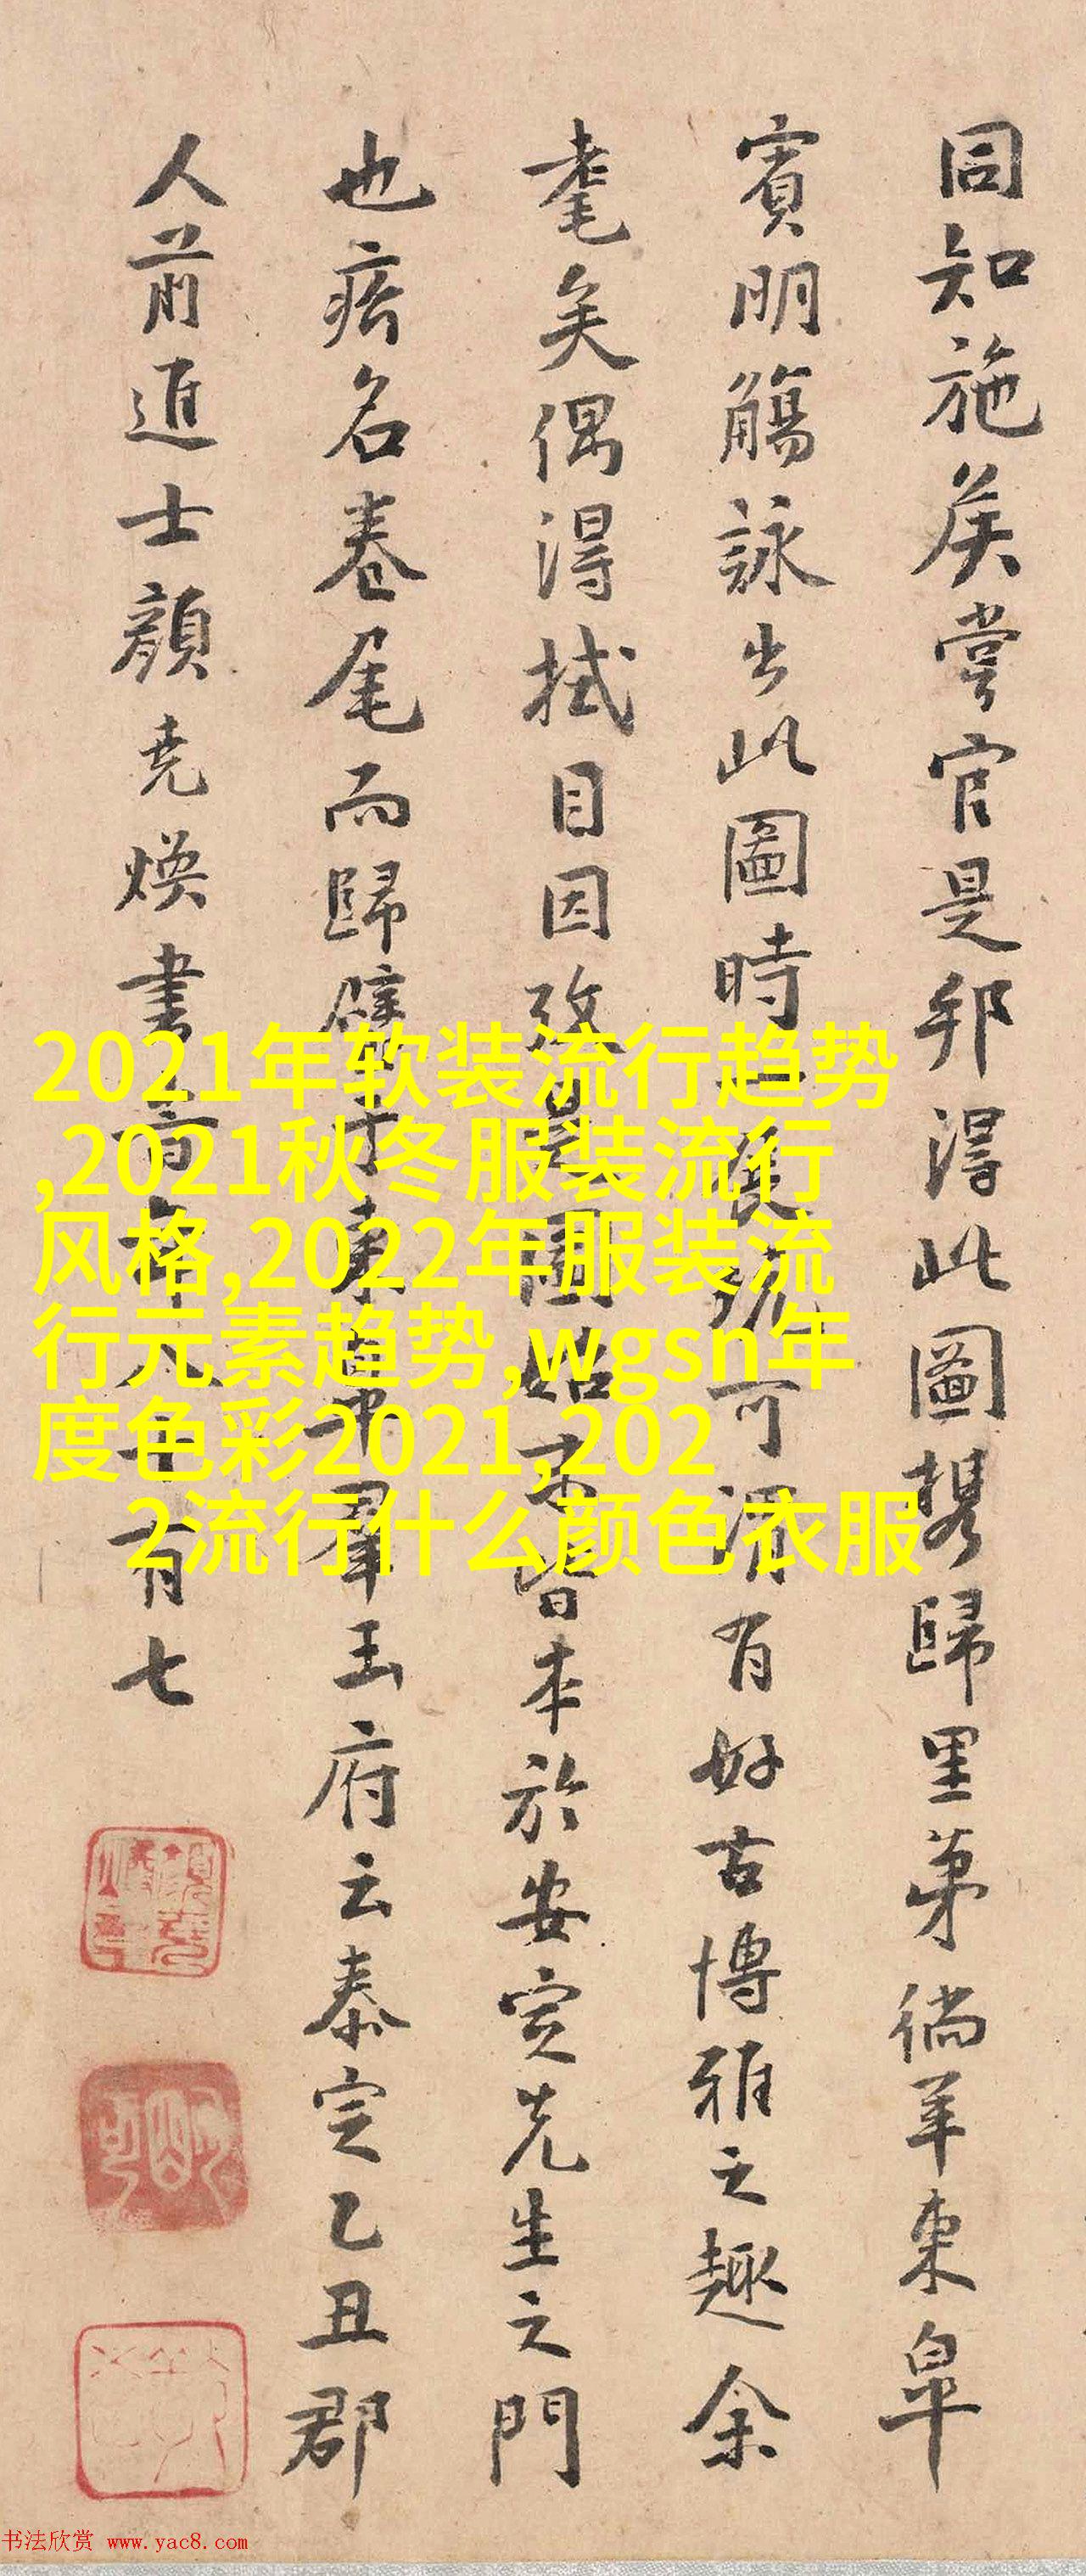 同知施矦嘗官是邦得此圖携歸里第徜羊東皐
賓明觴詠出此圖時一展玩可謂有好古博雅之趣余
耄矣偶得拭目因攷是圖始末皆本於安定先生之門
也㾗名卷尾而歸
羣玉府云泰定乙丑郡
人前進士顏堯煥書
年八十有七
2021年软装流行趋势
,2021秋冬服装流行
风格,2022年服装流
行元素趋势,wgsn年
度色彩2021,202
2流行什么颜色衣服
书法欣赏 www.yac8.com